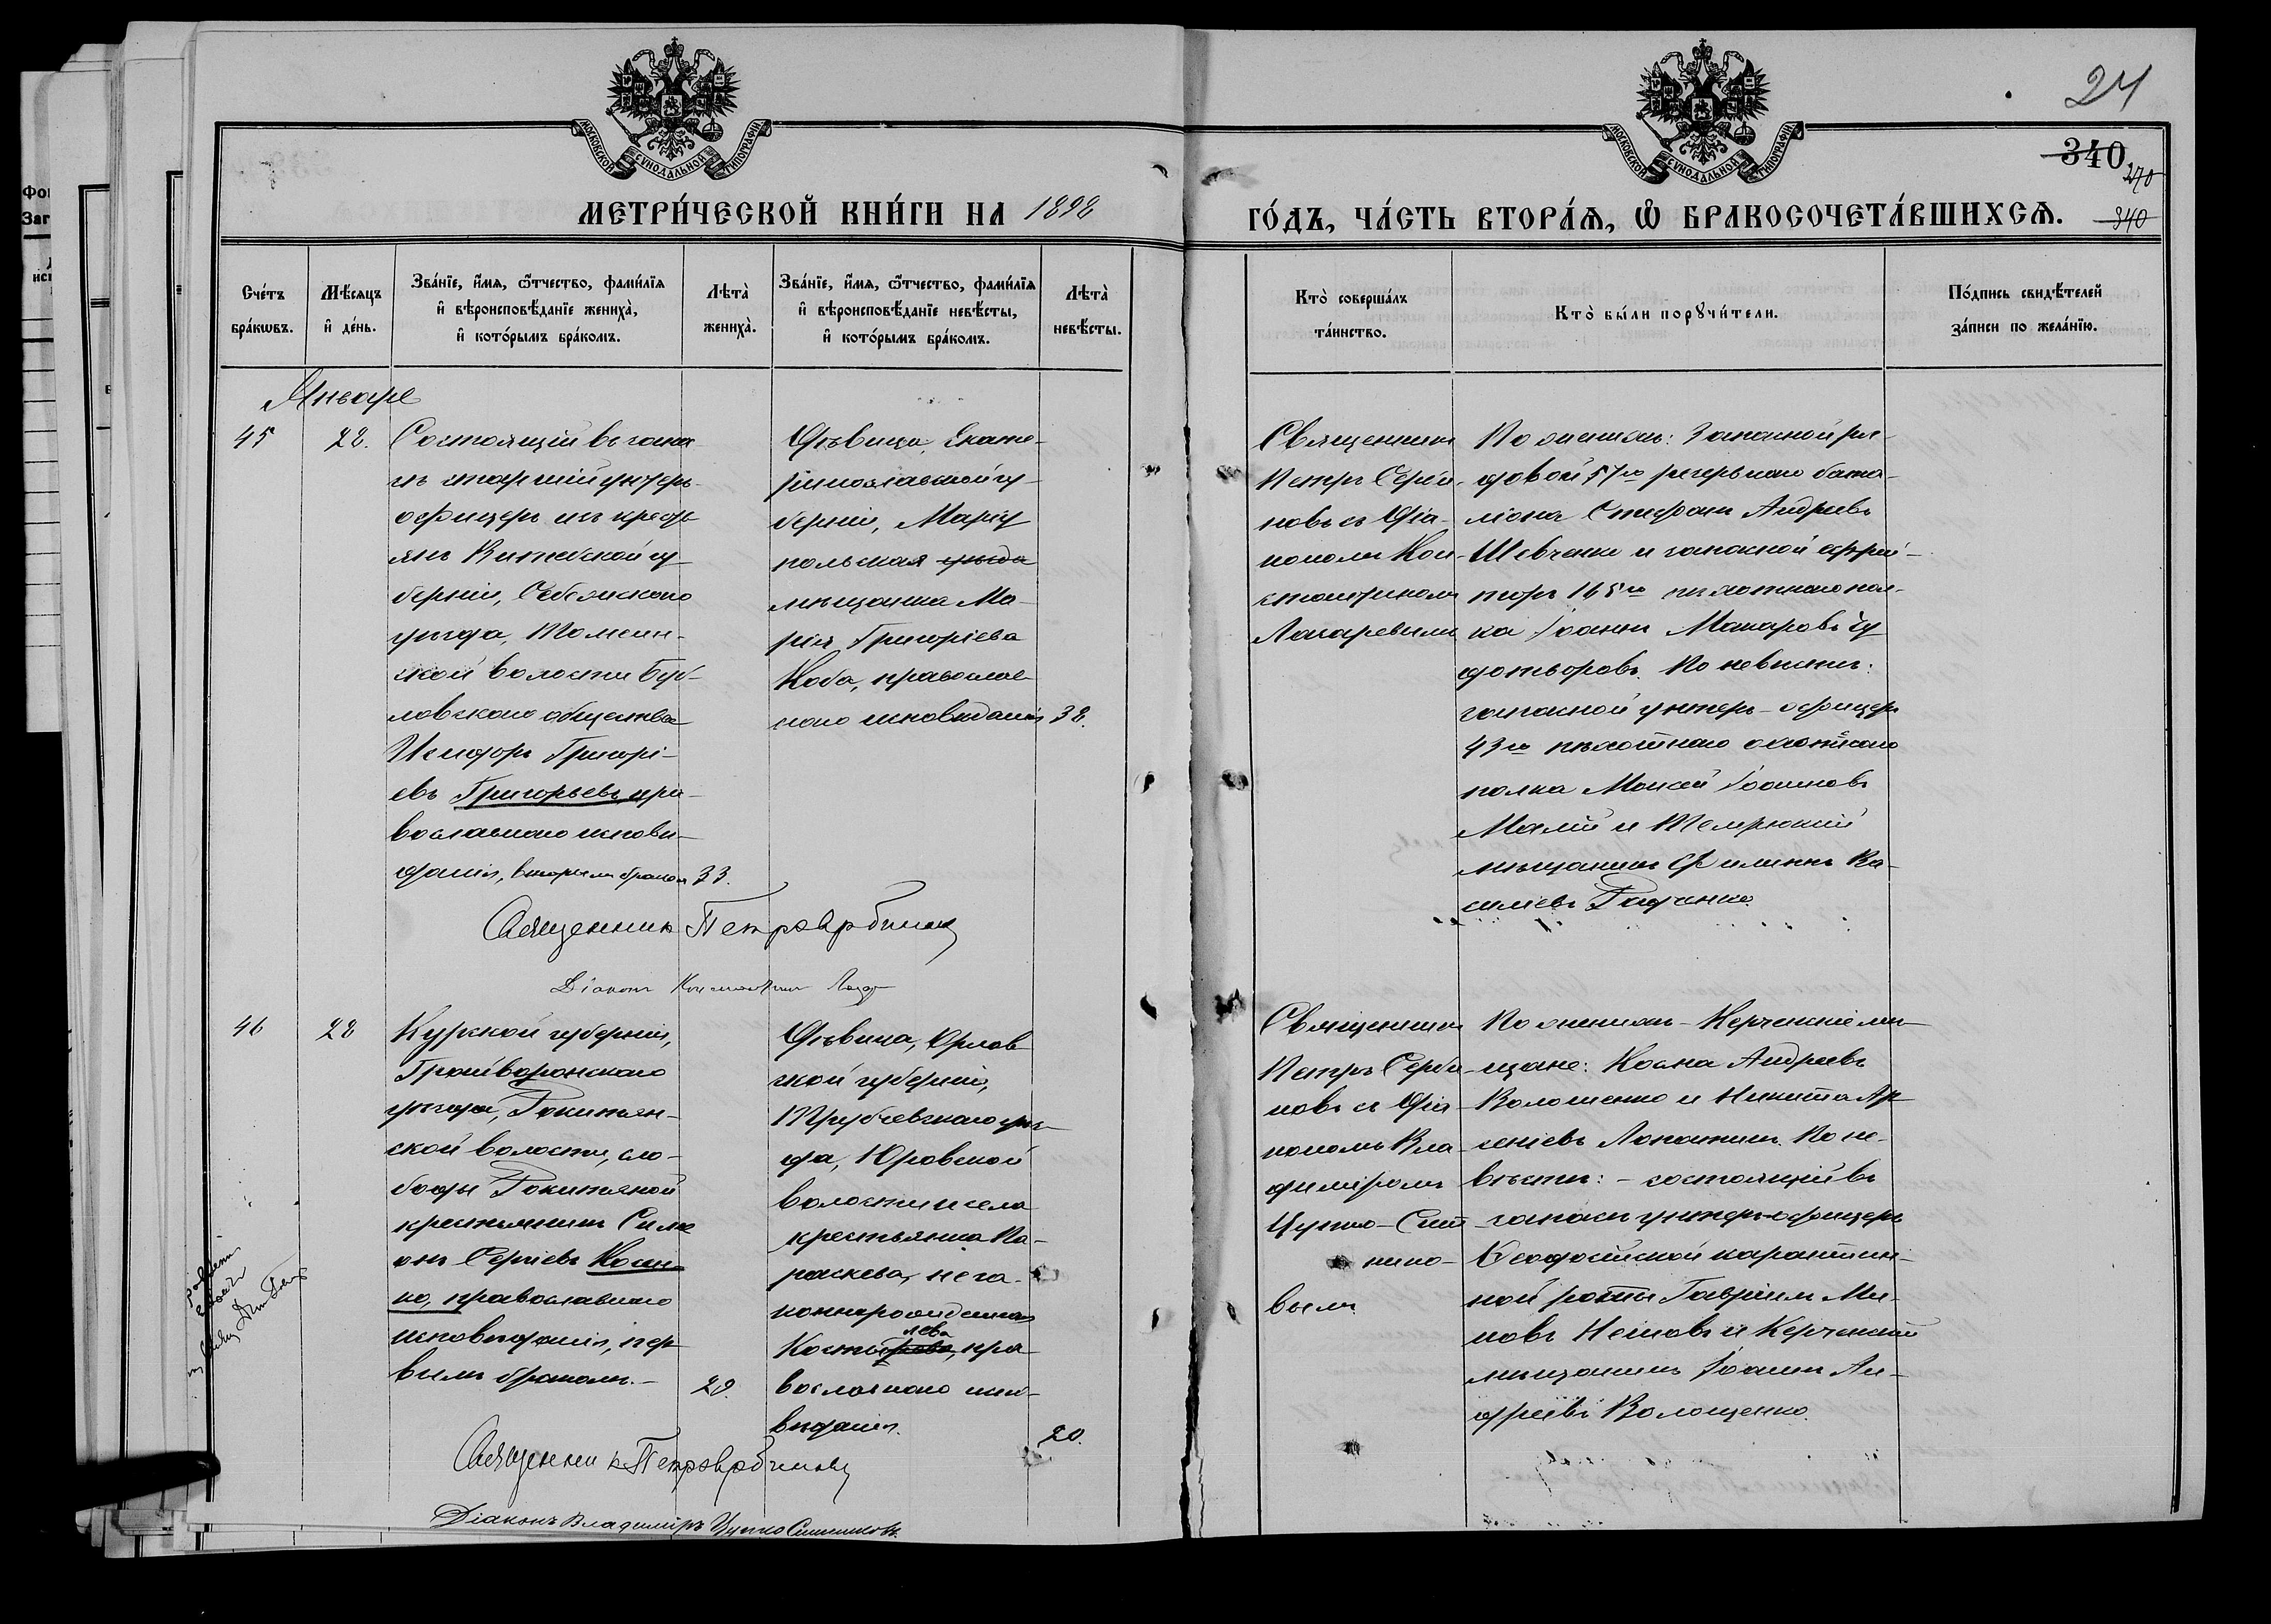 24
340
270
340
МОСКОВСКОЙ СѴНОДАЛЬНОЙ ТИПОГРАФІИ
МОСКОВСКОЙ СѴНОДАЛЬНОЙ ТИПОГРАФІИ
МЕТРИ́ЧЕСКОЙ КНИ́ГИ НА 1898
ГО́ДЪ, ЧА́СТЬ ВТОРА́Я, Ѡ҆ БРАКОСОЧЕТА́ВШИХСЯ.
Сче́тъ
бра́кѡвъ.
Мѣ́сяцъ
и҆ де́нь.
Зва́нїе, и҆́мя, ѻ҆́тчество, фами́лїя
и҆ вѣроисповѣ́данїе жениха̀,
и҆ кото́рымъ бра́комъ.
Лѣта̀
жениха̀.
Зва́нїе, и҆́мя, ѻ҆́тчество, фами́лїя
и҆ вѣроисповѣ́данїе невѣ́сты,
и҆ кото́рымъ бра́комъ.
Лѣта̀
невѣ́сты.
Кто̀ соверша́лъ
та́инство.
Кто̀ бы́ли порꙋчи́тели.
По́дпись свидѣ́телей
за́писи по жела́нїю.
Январь
45
28.
Состоящій въ запа-
съ старшій унтеръ-
офицеръ изъ кресть-
янъ Витебской гу-
берніи, Себежскаго
уѣзда, Томсин-
ской волости Буб-
ловскаго общества
Исидоръ Григорі-
евъ Григорьевъ, пра-
вославнаго исповѣ-
данія, вторымъ бракомъ
33.
Дѣвица, Екате-
ринославской гу-
берніи, Маріу
польская уѣзда
мѣщанка Ма-
рія Григоріева
Коба, православ-
наго исповѣданія
38.
Священникъ
Петръ Серби-
новъ съ діа-
кономъ Кон-
стантиномъ
Лазаревымъ
По женихѣ: Запасной ря-
довой 57го резервнаго бата-
ліона Стефанъ Андреевъ
Шевченко и запасной ефрей-
торъ 165го пѣхотнаго пол-
ка Іоаннъ Макаровъ Чу
дотворовъ. По невѣстѣ:
запасной унтеръ-офицеръ
43го пѣхотнаго охотскаго
полка Моисей Іоанновъ
Малій и Темрюкскій
мѣщанинъ Филиппъ Ва-
силіевъ Радченко.
Священникъ Петръ Сербиновъ
Діаконъ Константинъ Лазар
46
28
Курской губерніи,
Грайворонскаго
уѣзда, Ракитян-
ской волости, сло-
боды Ракитяной
крестьянинъ Симе
онъ Сергіевъ Коши-
ко, православнаго
исповѣданія, пер-
вымъ бракомъ.-
29.
Дѣвица, Орлов-
ской губерніи,
Трубчевскаго уѣз-
да, Юровской
волости и села
крестьянка Па-
раскева, неза-
коннорожденная
лева
Костырева, пра
вославнаго испо-
вѣданія.
20.
Священникъ
Петръ Серби
новъ съ діа-
кономъ Вла-
диміромъ
Цупко-Сит-
нико-
вымъ
По женихѣ - Керченскіе мѣ-
щане: Косма Андреевъ
Волошенко и Никита Ар-
сеніевъ Лопатинъ. По не-
вѣстѣ: - состоящій въ
запасѣ унтеръ-офицеръ
Ѳеодосійской карантин-
ной роты Гавріилъ Ми-
новъ Нешовъ и Керченскій
мѣщанинъ Іоаннъ Ан-
дреевъ Волощенко.
Священникъ Петръ Сербиновъ
Діаконъ Владиміръ Цупко Ситниковъ.